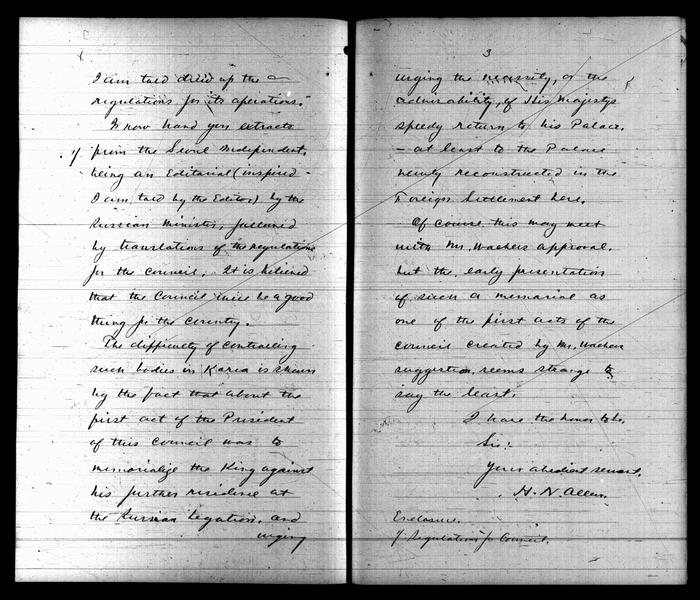 I am told drew up the
regulations for its operations.
I now hand you extracts
1/ from the Seoul Independent,
being an Editorial (inspired
I am told by the Editor) by the
Russian Minister, followed
by translations of the regulations
for the Council. It is believed
that the Council will be a good
thing for the country.
The difficulty of controlling
such bodies in Korea is shown
by the fact that about the
first act of the President
of this Council was to
memorialize the King against
his further residence at
the Russian Legation, and
urging
3
urging the necessity, or the
advisability, of His Majestys
speedy return to his Palace,
- at least to the Palace
newly reconstructed in the
Foreign Settlement here.
Of course this may meet
with Mr. Waebers approval,
but the early presentation
of such a memorial as
one of the first acts of the
council created by Mr. Waebers
suggestion, seems strange to
say the least.
I have the honor to be,
Sir:
Your obedient servant,
H. N. Allen.
Enclosure.
1/ Regulations for Council.